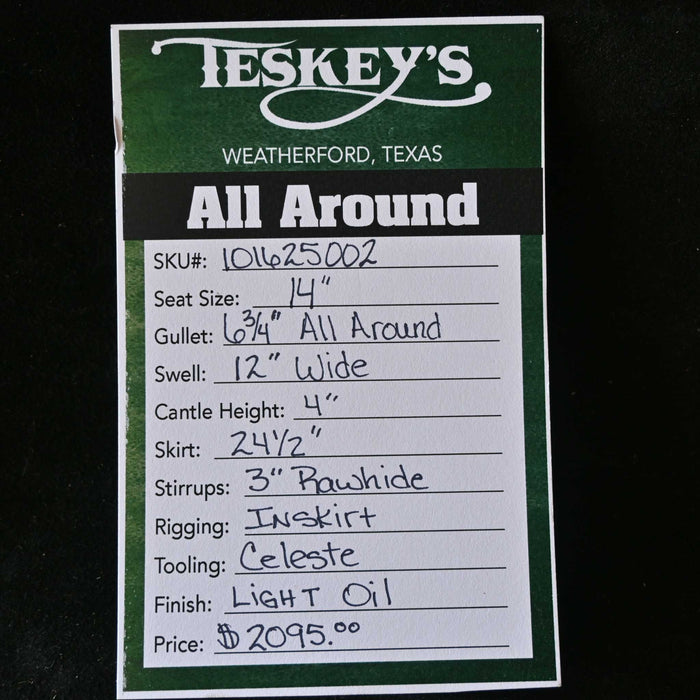 TESKEY'S
WEATHERFORD, TEXAS
All Around
SKU#: 101625002
Seat Size: 14"
Gullet: 6 3/4" All Around
Swell: 12" Wide
Cantle Height: 4"
Skirt: 24 1/2"
Stirrups: 3" Rawhide
Rigging: INSKirt
Tooling: Celeste
Finish: LiGHT Oil
Price: $2095.00